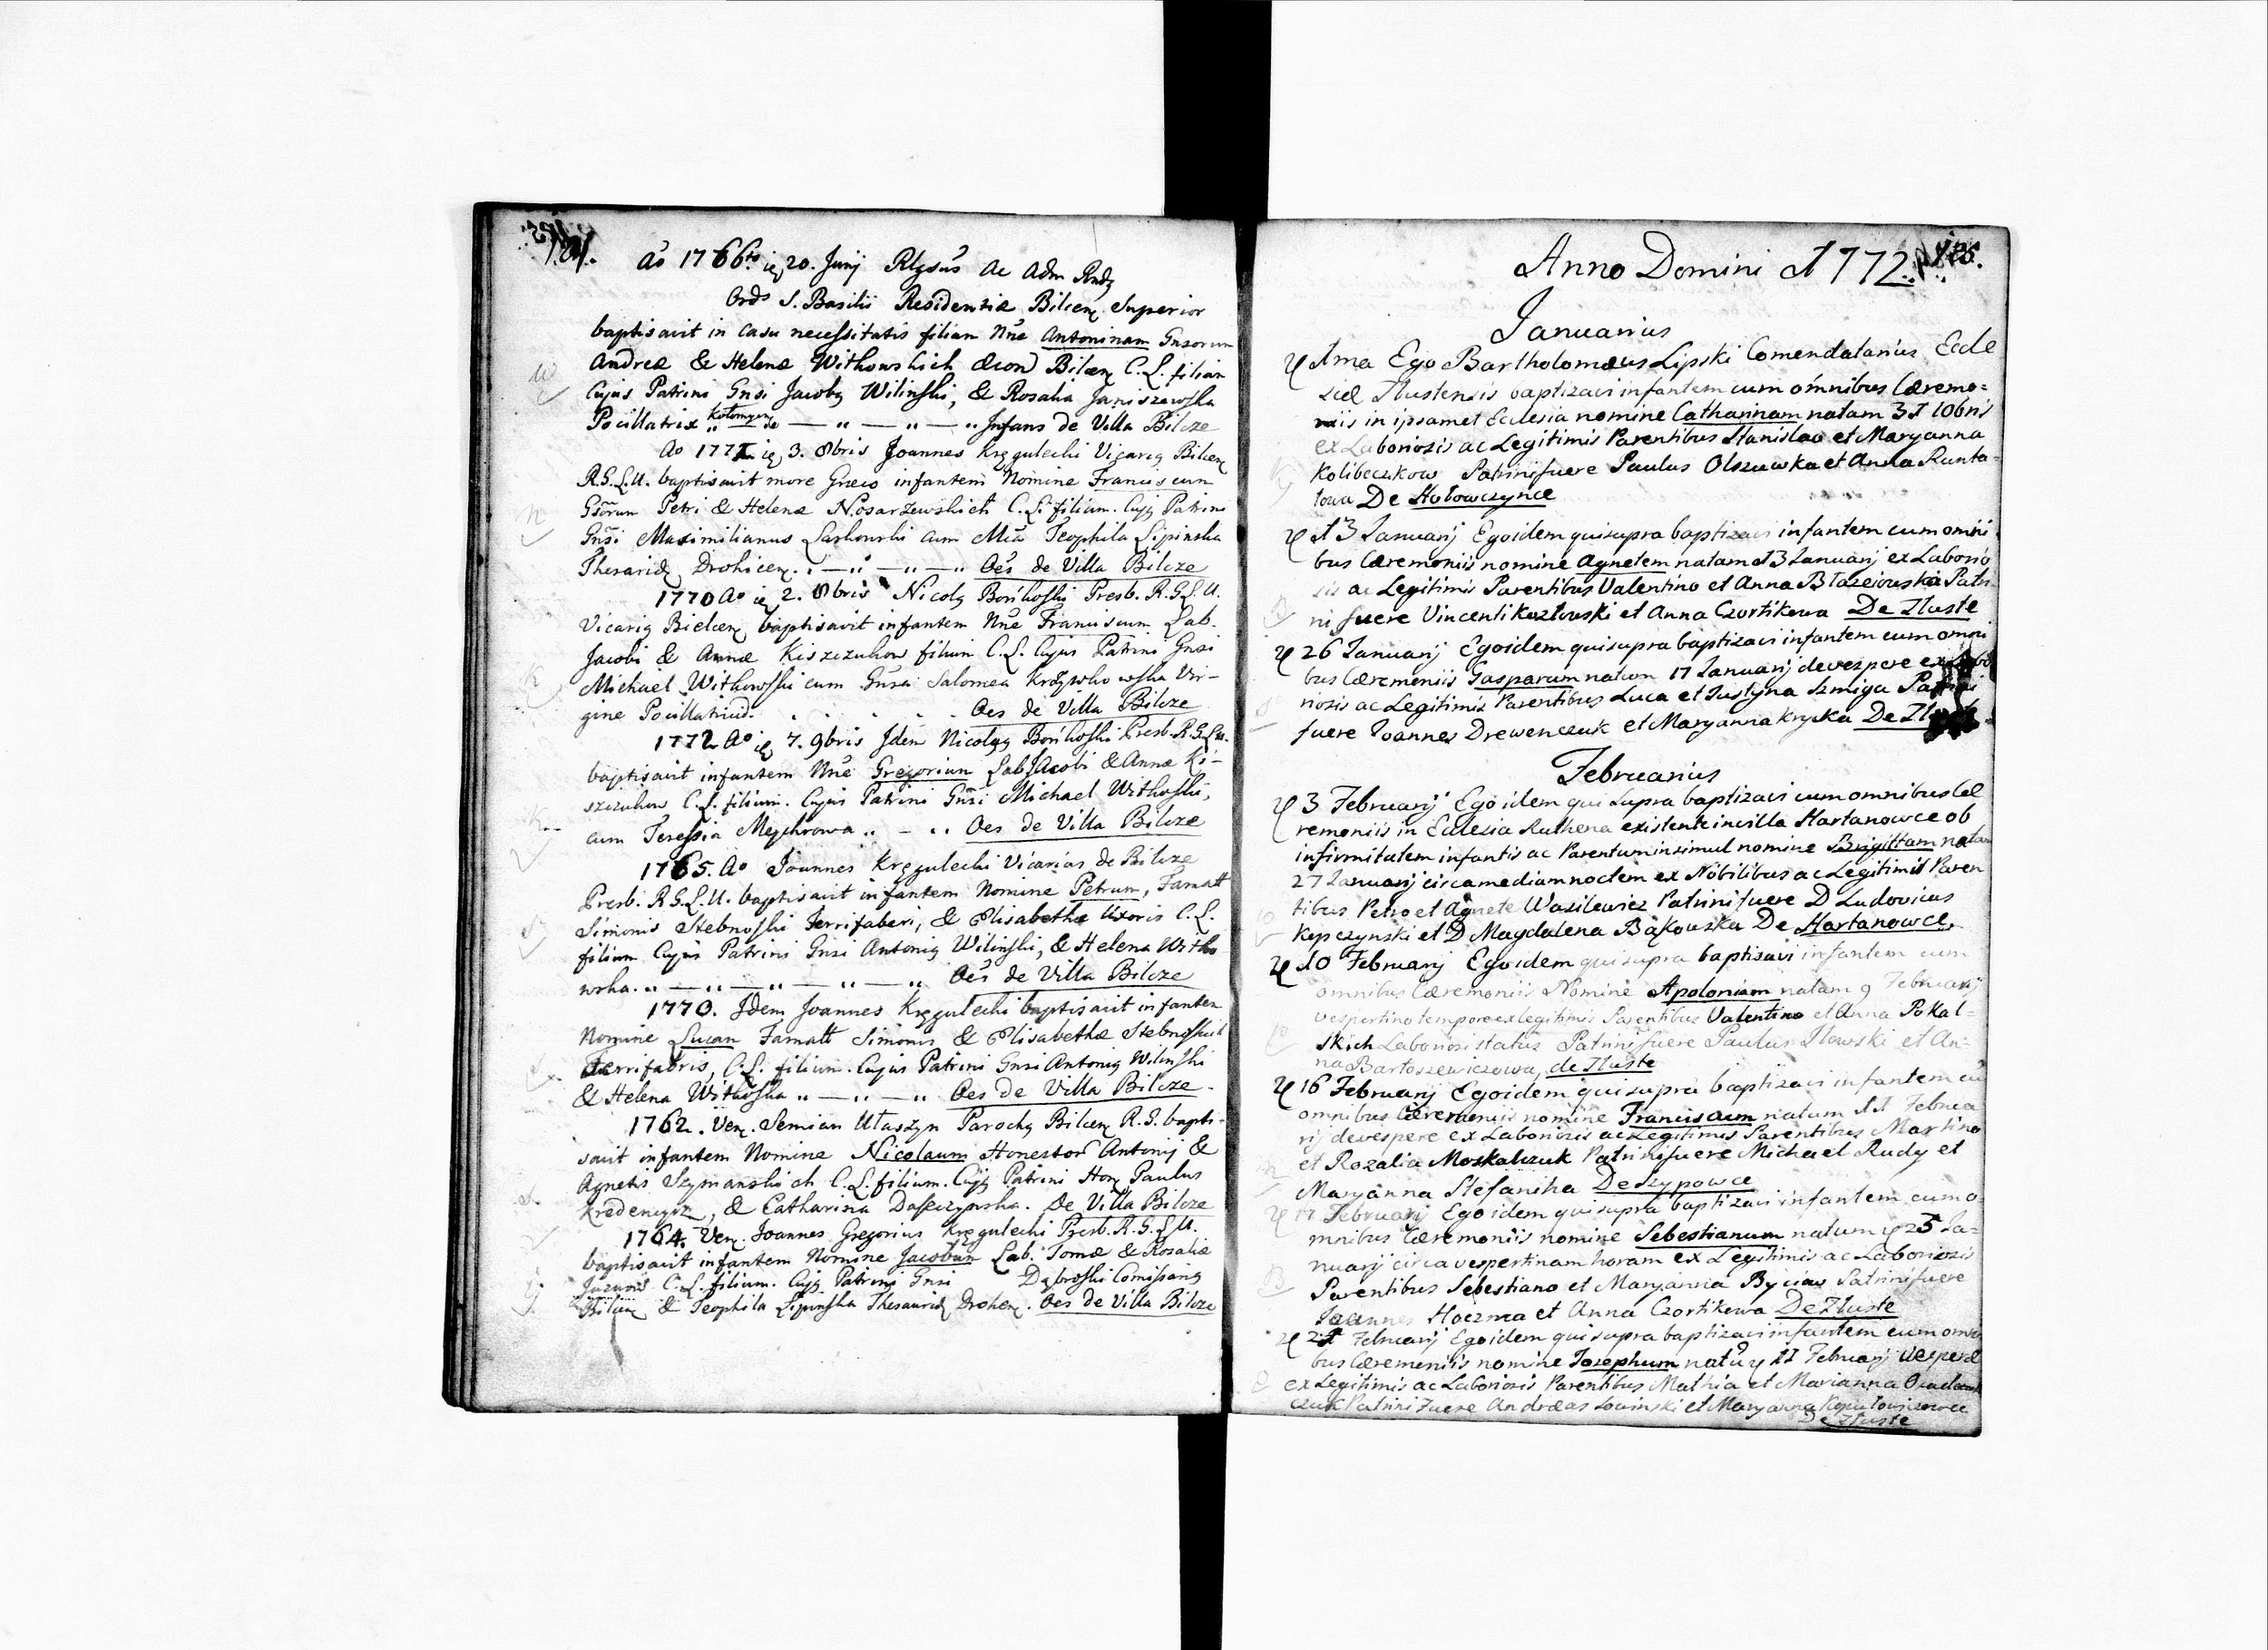 124.
Ao 1766to ię 20. Junij Rlgsus Ac Adm Rndg
Ords S. Basilii Residentiæ Bilcen Superior
baptisavit in casu necessitatis filiam Nne Antoninam Gnsorum
Andreæ & Helenæ Withowskich Bilcen C. L. filiam
Cujus Patrini Gnsi Jacobg Wilinski, & Rosalia Janiszewska
Pocillatrix Kołomyen de — „ — „ — „ Infans de Villa Bilcze
Ao 1771 ię 3. 8bris Joannes Kręgulecki Vicarig Bilcen
R.G.L.U. baptisavit more Græco infantem Nomine Franciscum
Gsorum Petri & Helenæ Nosarzewskich C. L. filium. Cujg Patrini
Gnsi Maximilianus Laskowski cum Mca Teophila Lipinska
Thesarid Drohicen. „ — „ — „ — „ Oes de Villa Bilcze
1770 Ao ię 2. 8bris Nicolg Bońkoski Presb. R.G.L.U.
Vicarig Bielcen baptisavit infantem Nne Franciscum Lab.
Jacobi & Annæ Kiszczukow filium C. L. Cujus Patrini Gnsi
Michael Withowski cum Gnsa Salomea Krzywkowska Vir-
gine Pocillatrind. . . . . . Oes de Villa Bilcze
1772 Ao ię 7. 9bris Idem Nicolgg Bońkoski Presb. R.G.L.U.
baptisavit infantem Nne Gregorium Lab Jacobi & Annæ Ki-
szczukow C. L. filium. Cujus Patrini Gnsi Michael Withoski,
cum Teressia Meychrowa „ - „ Oes de Villa Bilcze
1765. Ao Joannes Kręgulecki Vicarias de Bilcze
Presb. R.G.L.U. baptisavit infantem Nomine Petrum, Famatt
Simonis Stebnoski Ferrifabri, & Elisabethæ Uxoris C. L.
filium Cujus Patrini Gnsi Antonig Wilinski, & Helena Witko
wska. „ — „ — „ — „ — „ Oes de Villa Bilcze
1770. Idem Joannes Kręgulecki baptisavit infantem
Nomine Lucam Famatt Simonis & Elisabethæ Stebnoskich
Ferrifabris, C. L. filium. Cujus Patrini Gnsi Antonig Wilinski
& Helena Withoska „ — „ — „ Oes de Villa Bilcze
1762. Ven. Semian Utaszyn Parochg Bilcen R.G. bapti-
savit infantem Nomine Nicolaum Honestor Antonij &
Agnetis Szymanskich C. L. filium. Cujg Patrini Hon Paulus
Kredencyrz, & Catharina Daszczynska. De Villa Bilcze
1764. Ven. Joannes Gregorius Kręgulecki Presb. R.G.L.U.
baptisavit infantem Nomine Jacobum Lab. Tomæ & Rosaliæ
C. L. filium. Cujg Patrini Gnsi Dąbroski Comissarig
Bilcen & Teophila Lipinska Thesaurid Drohen. Oes de Villa Bilcze
Anno Domini 1772. 125.
Januarius
1ma Ego Bartholomæus Lipski Comendatarius Eccle
siæ Tlustensis baptizavi infantem cum omnibus Cæremo=
niis in ipsamet Ecclesia nomine Catharinam natam 31 10bris
ex Laboriosis ac Legitimis Parentibus Stanislao et Maryanna
Kolibeczkow Patrini fuere Paulus Olszawka et Anna Runta-
towa De Hołowczynce
13 Januarij Ego idem qui supra baptizavi infantem cum omni
bus Cæremoniis nomine Agnetem natam 13 Januarij ex Laborio
sis ac Legitimis Parentibus Valentino et Anna Błazeiowska Patri
ni fuere Vincenti Kozłowski et Anna Czortikowa De Tłuste
26 Januarij Ego idem qui supra baptizavi infantem cum omni
bus Cæremoniis Gasparum natum 17 Januarij de vespere ex Labo
riosis ac Legitimis Parentibus Luca et Justyna Szmiga Patrini
fuere Joannes Drewenczuk et Maryanna Krycka De Tłuste
Februarius
3 Februarij Ego idem qui supra baptizavi cum omnibus Cæ
remoniis in Eclesia Ruthena existente in villa Hartanowce ob
infirmitatem infantis ac Parentum insimul nomine Brigittam natam
27 Januarij circa mediam noctem ex Nobilibus ac Legitimis Paren
tibus Petro et Agnete Wasilewicz Patrini fuere D Ludovicus
Kepczynski et D Magdalena Bąkowska De Hartanowce.
10 Februarij Ego idem qui supra baptisavi infantem cum
omnibus Cæremoniis Nomine Apoloniam natam 9 Februarij
vespertino tempore ex legitimis Parentibus Valentino et Anna Pokal=
skich Laboriosi status Patrini fuere Paulus Iłowski et An=
na Bartoszewiczowa, de Tłuste
16 Februarij Ego idem qui supra baptizavi infantem cū
omnibus Cæremoniis nomine Franciscum natum 11 Februa
rij de vespere ex Laboriosis ac Legitimis Parentibus Martino
et Rozalia Moskalczuk Patrini fuere Michael Rudy et
Maryanna Stefanika De Szypowce
17 Februarij Ego idem qui supra baptizavi infantem cum o-
mnibus Cæremoniis nomine Sebestianum natum 25 Ja-
nuarij circa vespertinam horam ex Legitimis ac Laboriosis
Parentibus Sebestiano et Maryanna Byciaw Patrini fuere
Joannes Hoczma et Anna Czortikowa De Tłuste
21 Februarij Ego idem qui supra baptizavi infantem cum omni
bus Cæremoniis nomine Josephum natū 11 Februarij vespere
ex Legitimis ac Laboriosis Parentibus Mathia et Marianna
czuk Patrini Fuere Andræas Łowinski et Maryanna
De Tłuste